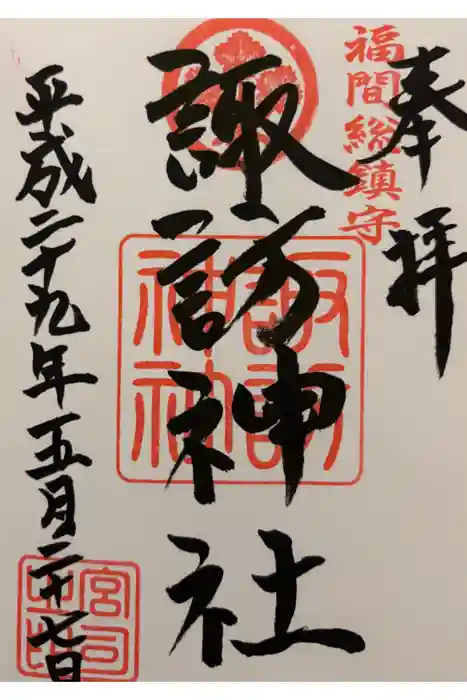 奉拝
福間総鎮守
諏訪神社
諏訪神社
平成二十九年五月二十七日
宮司之印